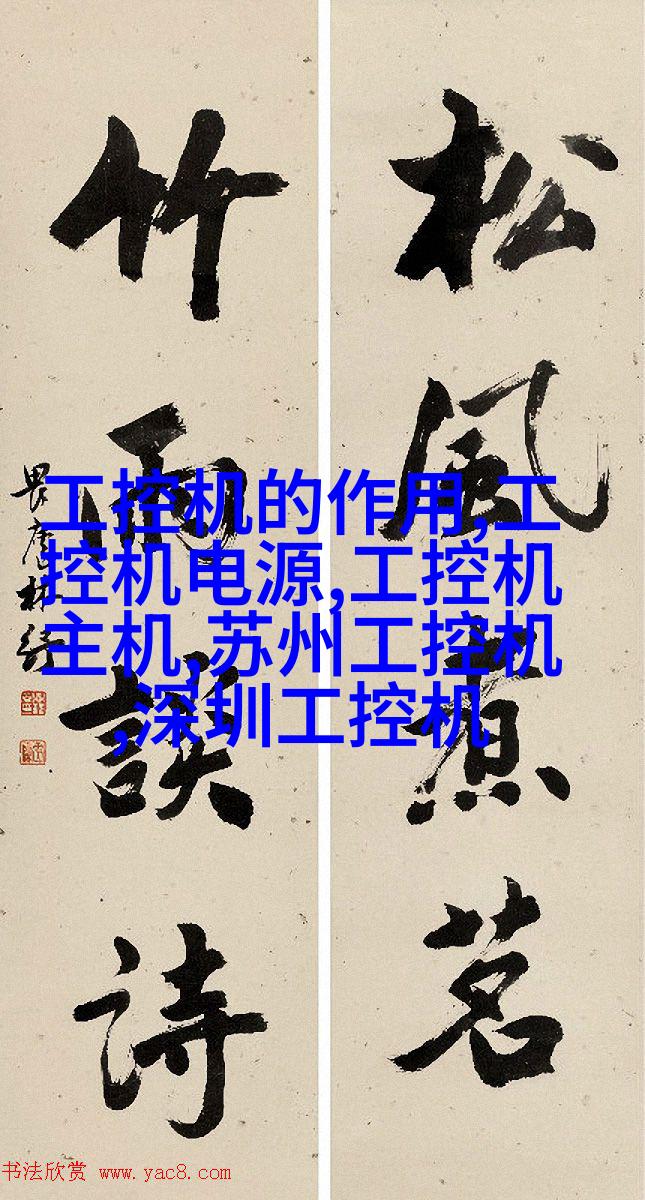 松
風
煮
茗
竹
雨
談
詩
畏廬林紓
工控机的作用,工
控机电源,工控机
主机,苏州工控机
,深圳工控机
书法欣赏 www.yac8.com